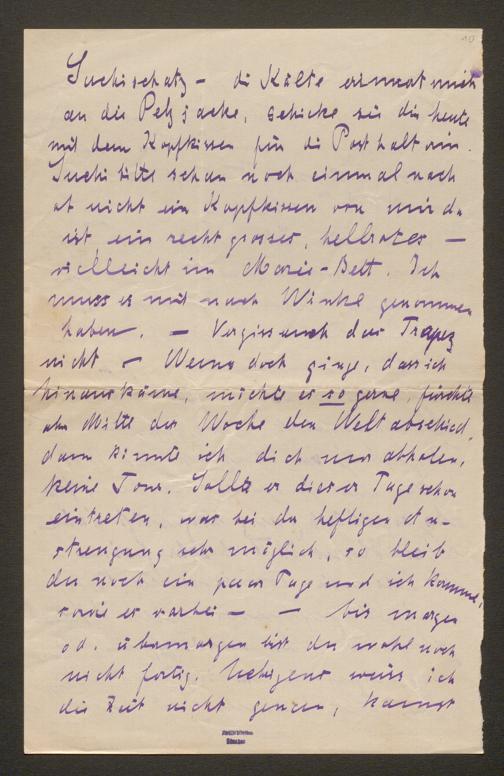 Suchischatz – die Kälte erinnert mich
an die Pelzjacke, schicke sie dir heute
mit dem Kopfkissen für die Posthalterin.
Suchi bitte schau noch einmal nach
ob nicht ein Kopfkissen von mir da
ist, ein recht grosses, hellrotes –
vielleicht im Marie-Bett. Ich
muss es mit nach Winkel genommen
haben. – Vergiss auch das Trapez
nicht – Wenns doch ginge, dass ich
hinauskäme, möchte es so gerne, fürchte
aber Mitte der Woche den Weltabschied,
dann könnte ich dich nur abholen,
keine Tour. Sollte er dieser Tage schon
eintreten, was bei der heftigen An-
strengung sehr möglich, so bleib
du noch ein paar Tage und ich komme,
sowie es vorbei – – bis morgen
od. übermorgen bist du wohl noch
nicht fertig. Uebrigens weiss ich
die Zeit nicht genau, kannst